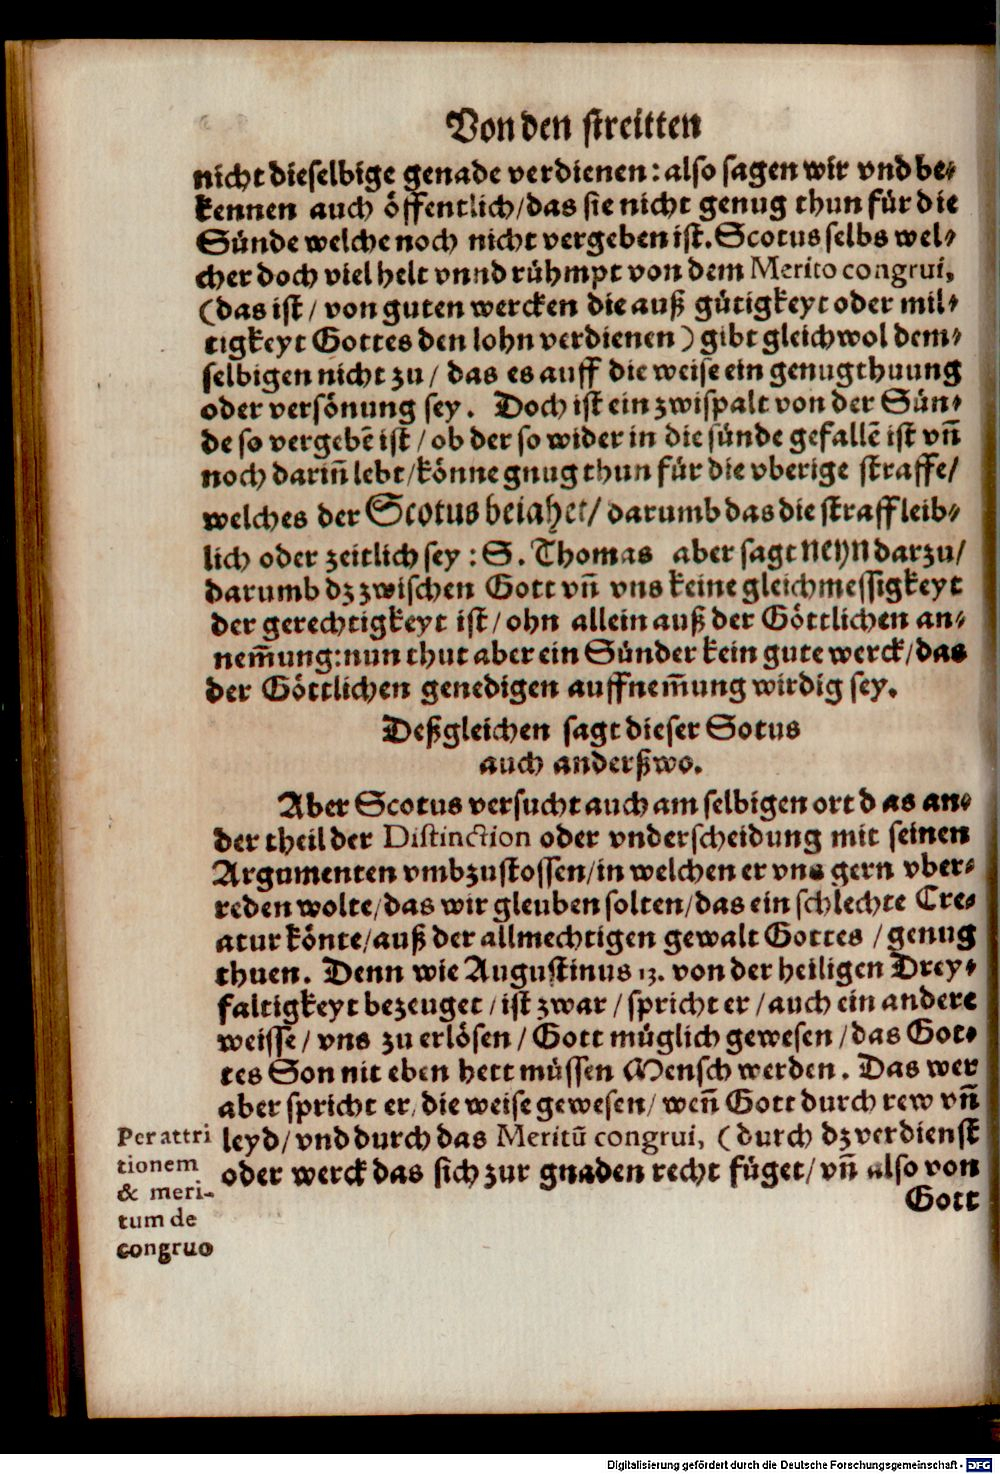 Von den streitten
nicht dieselbige genade verdienen: also sagen wir vnd be⸗
kennen auch öffentlich/das sie nicht genug thun für die
Sünde welche noch nicht vergeben ist. Scotus selbs wel⸗
cher doch viel helt vnnd rühmpt von dem Merito congrui,
(das ist / von guten wercken die auß gütigkeyt oder mil⸗
tigkeyt Gottes den lohn verdienen) gibt gleichwol dem⸗
selbigen nicht zu / das es auff die weise ein genugthuung
oder versönung sey. Doch ist ein zwispalt von der Sün⸗
de so vergebē ist / ob der so wider in die sünde gefallē ist vñ
noch darin̄ lebt/könne gnug thun für die vberige straffe/
welches der Scotus beiahet/ darumb das die straff leib⸗
lich oder zeitlich sey : S. Thomas aber sagt neyn darzu/
darumb dz zwischen Gott vñ vns keine gleichmessigkeyt
der gerechtigkeyt ist/ ohn allein auß der Göttlichen an⸗
nem̄ung: nun thut aber ein Sünder kein gute werck/das
der Göttlichen genedigen auffnem̄ung wirdig sey.
Deßgleichen sagt dieser Sotus
auch anderßwo.
Aber Scotus versucht auch am selbigen ort d as an⸗
der theil der Distinction oder vnderscheidung mit seinen
Argumenten vmbzustossen/in welchen er vns gern vber⸗
reden wolte/das wir gleuben solten/das ein schlechte Cre⸗
atur könte/auß der allmechtigen gewalt Gottes / genug
thuen. Denn wie Augustinus 13. von der heiligen Drey⸗
faltigkeyt bezeuget / ist zwar / spricht er / auch ein andere
weisse / vns zu erlösen / Gott müglich gewesen / das Got⸗
tes Son nit eben hett müssen Mensch werden. Das wer
aber spricht er/ die weise gewesen/ weñ Gott durch rew vñ
leyd/ vnd durch das Meritū congrui, (durch dz verdienst
oder werck das sich zur gnaden recht füget/ vñ also von
Gott
Per attri
tionem
& meri-
tum de
congruo
Digitalisierung gefördert durch die Deutsche Forschungsgemeinschaft - DFG